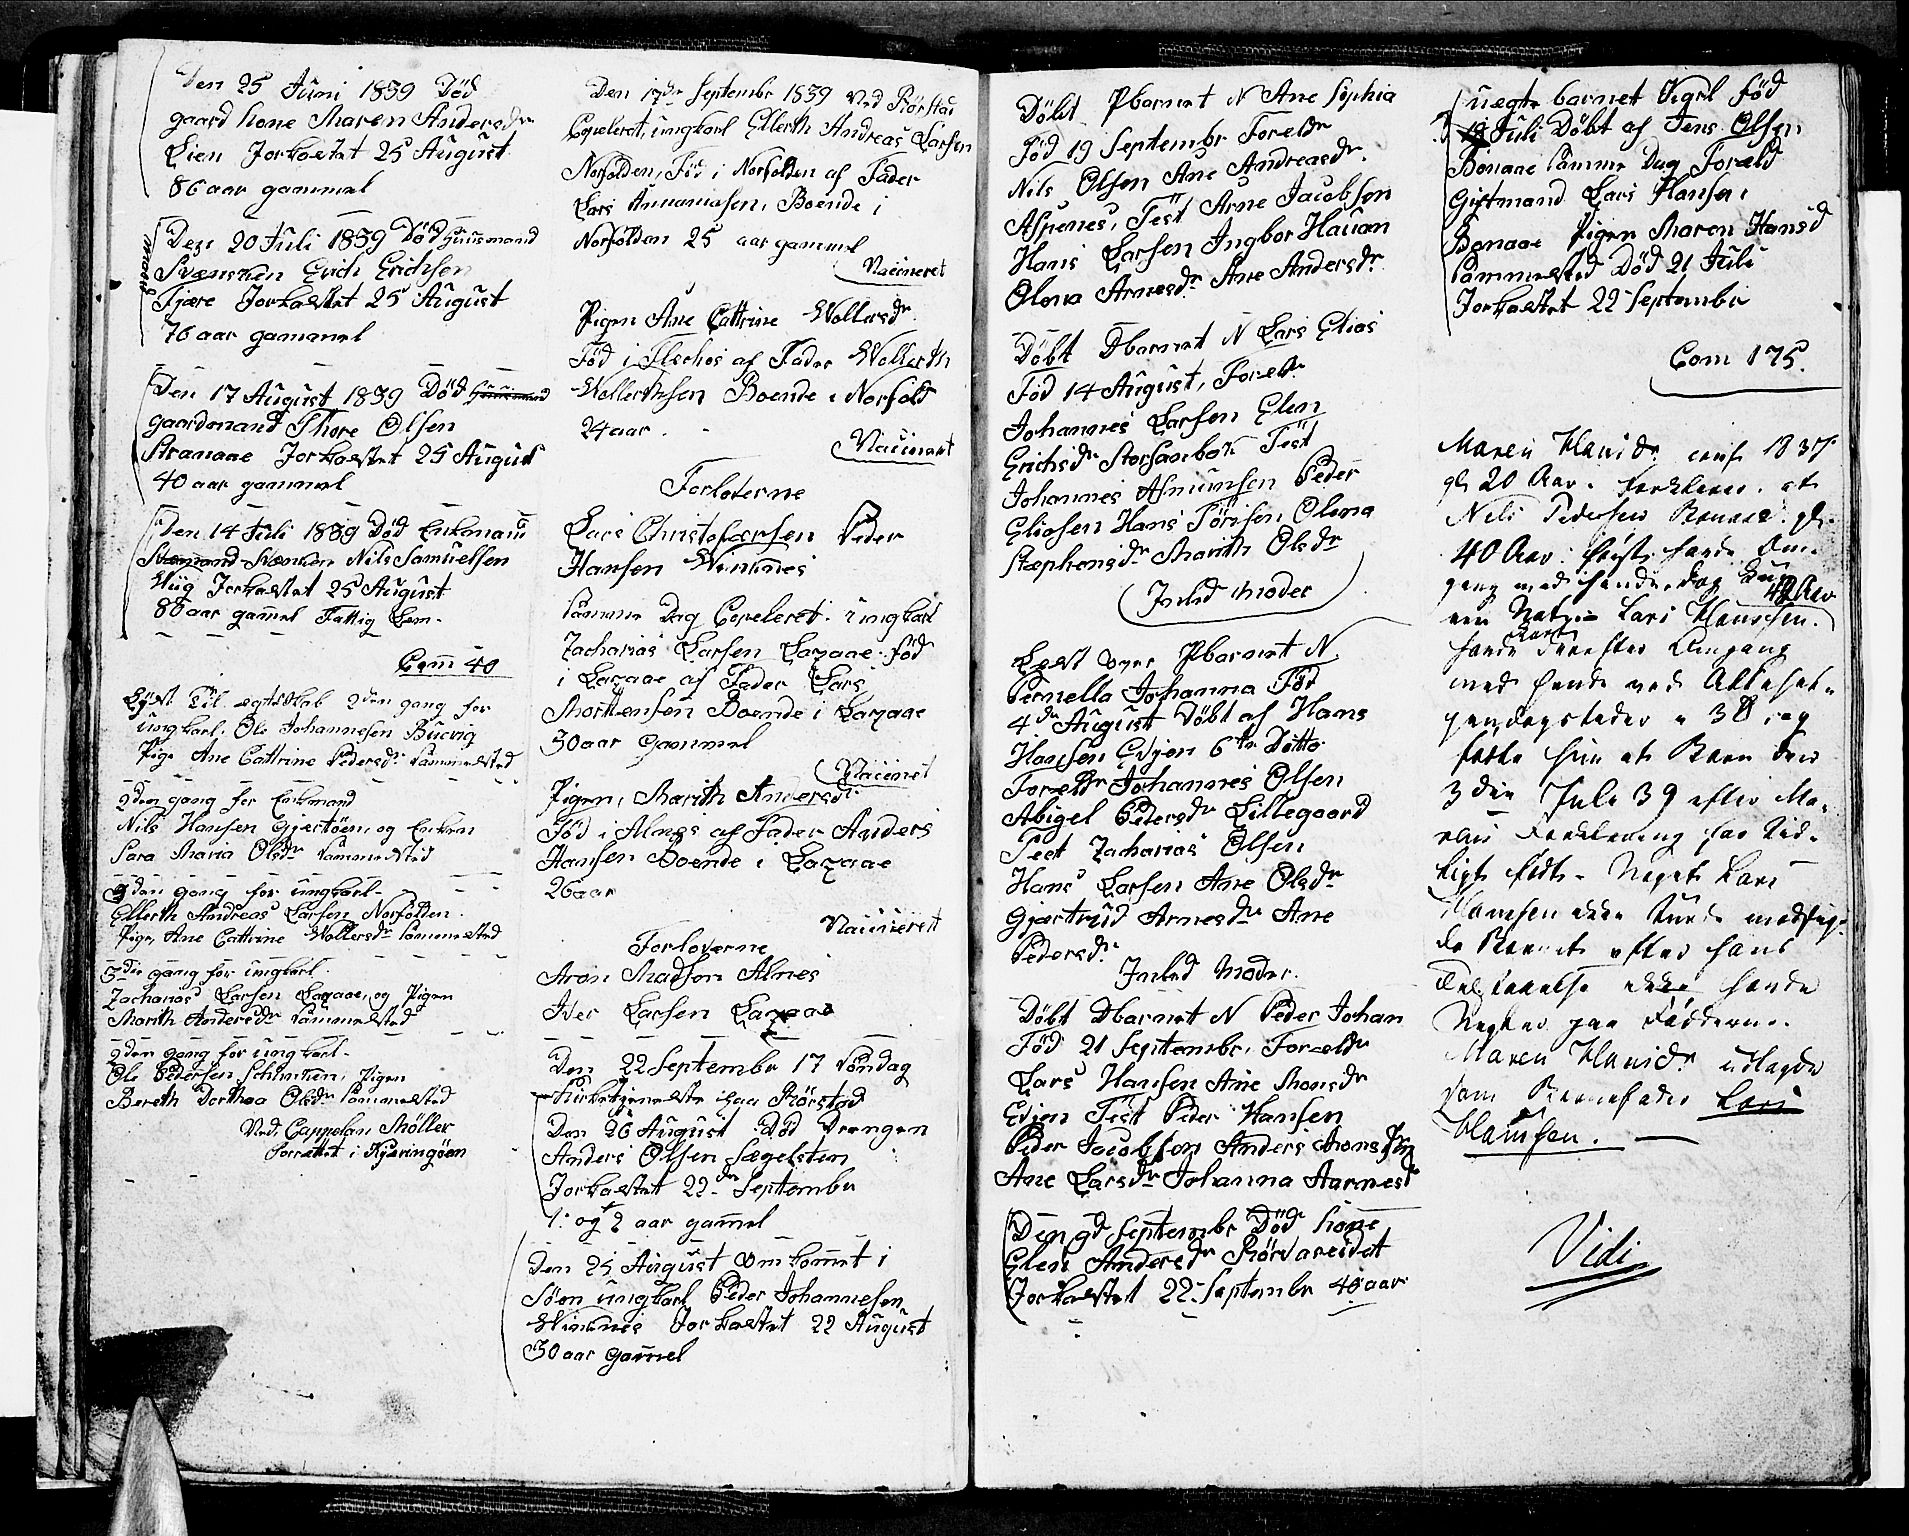 Den 25 Juni 1839 Død
gaard kone Maren Andersdr
Lien Jorkastet 25 August
86 aar gammel
Den 20 Juli 1839 Død Huusmand
Svensken Erich Erichsen
Fjære Jorkastet 25 August
76 aar gammel
Den 17 August 1839 Død
gaardmand Thore Olsen
Straaaae Jorkastet 25 August
40 aar gammel
Den 14 Juli 1839 Død Enkmand
Nils Samuelsen
Wiig Jorkastet 25 August
80 aar gamel Fattig Lem.
Com 40
Lyst Til ægteskab 2den gang for
ungkarl, Ole Johannesen Bucvig
Pige Ane Cattrine Pedersdr sammested
2den gang for Enkmand
Nils Hansen Gjertøen, og Enken
Sara Maria Olsdr sammested
2den gang for ungkarl
Ellerth Andreas Larsen Norfolden
Pige Ane Cattrine Wollersdr sammested
3die gang for ungkarl
Zacharias Larsen Laxaae, og Pigen
Marith Andersdr sammested
2den gang for ungkarl
Ole Pedersen Schinken, Pigen
Bereth Dorthea Olsdr sammested
Ved Cappelan Møller
forrettet i Kjeringøen
Den 17de Septembr 1839 Ved Rørstad
Copeleret, ungkarl Ellerth Andreas Larsen
Norfolden, Fød i Norfolden af Fader
Lars Annaniasen, Boende i
Norfolden 25 aar gammel
Vacineret
Pigen Ane Cattrine Wollersdr
Fød i af Fader Wollerth
Wollerthsen Boende i Norfold
24 aar
Vacineret
Forloverne
Lars Christofersen Peder
Hansen Winknes
samme Dag Copeleret ungkarl
Zacharias Larsen Laxaae fød
i Laxaae af Fader Lars
Mortensen Boende i Laxaae
30 aar Gammel
Vacinet
Pigen, Marith Andersdr
Fød i Alnes af Fader Anders
Hansen Boende i Laxaae
26 aar
Vacineret
Forloverne
Aron Madsen Alnes
Iver Larsen Laxaae
Den 22 Septembr 17 Søndag
Kirketjeneste paa Rørstad
Den 26 August Død Drengen
Anders Olsen Sægelsten
Jorkastet 22de Septembr
1 og ½ aar gamel
Den 25 August omkomet i
Søen ungkarl Peder Johannesen
Winknes Jorkastet 22 August
30 aar gamel
Døbt Pbarnet N Ane Sophia
Fød 19 Septembr Foreldr
Nils Olsen Ane Andreasdr
Aspenes, Test Arne Jacobsen
Hans Larsen Ingbor Hauan
Olena Arnesdr Ane Andersdr
Døbt Dbarnet N Lars Elias
Fød 14 August, Foreldr
Johannes Larsen Elen
Erichsdr Storsanbok Test
Johannes Asmunsen Peder
Eliasen Hans Tørrisen Olena
Stephensdr Marith Olsdr
Inled Moder
Lest over Pbarnet N
Pernella Johanna Fød
4de August Døbt af Hans
Hansen Evjen 6te Ditto
Foreldr Johannes Olsen
Abigel Pedersdr Lillegaard
Test Zacharias Olsen
Hans Larsen Ane Olsdr
Gjærtrud Arnesdr Ane
Pedersdr
Inled Moder
Døbt Dbarnet N Peder Johan
Fød 21 Septembr, Foreldr
Lars Hansen Ane Monsdr
Evjen Test Peder Hansen
Peder Jacobsen Anders Aronsen
Ane Larsdr Johanna Aarnesdr
Den 9d Septembr Død kone
Elen Andersdr Rørvaseidet
Jorkastet 22 Septembr 40 aar
uegte barnet Pigel fød
Juli Døbt af Jens Olsen
Bonaae samme Dag Foræld
Giftmand Lars Hansen
Bonaae Pigen Maren Hansd
sammested Død 21 Juli
Jorkastet 22 Septembr
Com 175.
Maren Hansdr conf 1837
gl 20 Aar. forklarer at
Nils Pedersen Bonaae gl.
40 Aar første havde Om-
gang med hende, dog kun
een Nat; Lars Hanssen 42 Aar
havde derefter Omgang
med hende ved
38, og
fødte hun et Barn den
3die Juli 39 efter Ma-
rens Forklaring for tid-
ligt født. Negte Lars
Hansen ikke turde modsig-
de Barnet efter hans
ikke havde
Negter paa Fødderne.
Maren Hansdr udlagde
som Barnefader Lars
Hansen.
Vidi